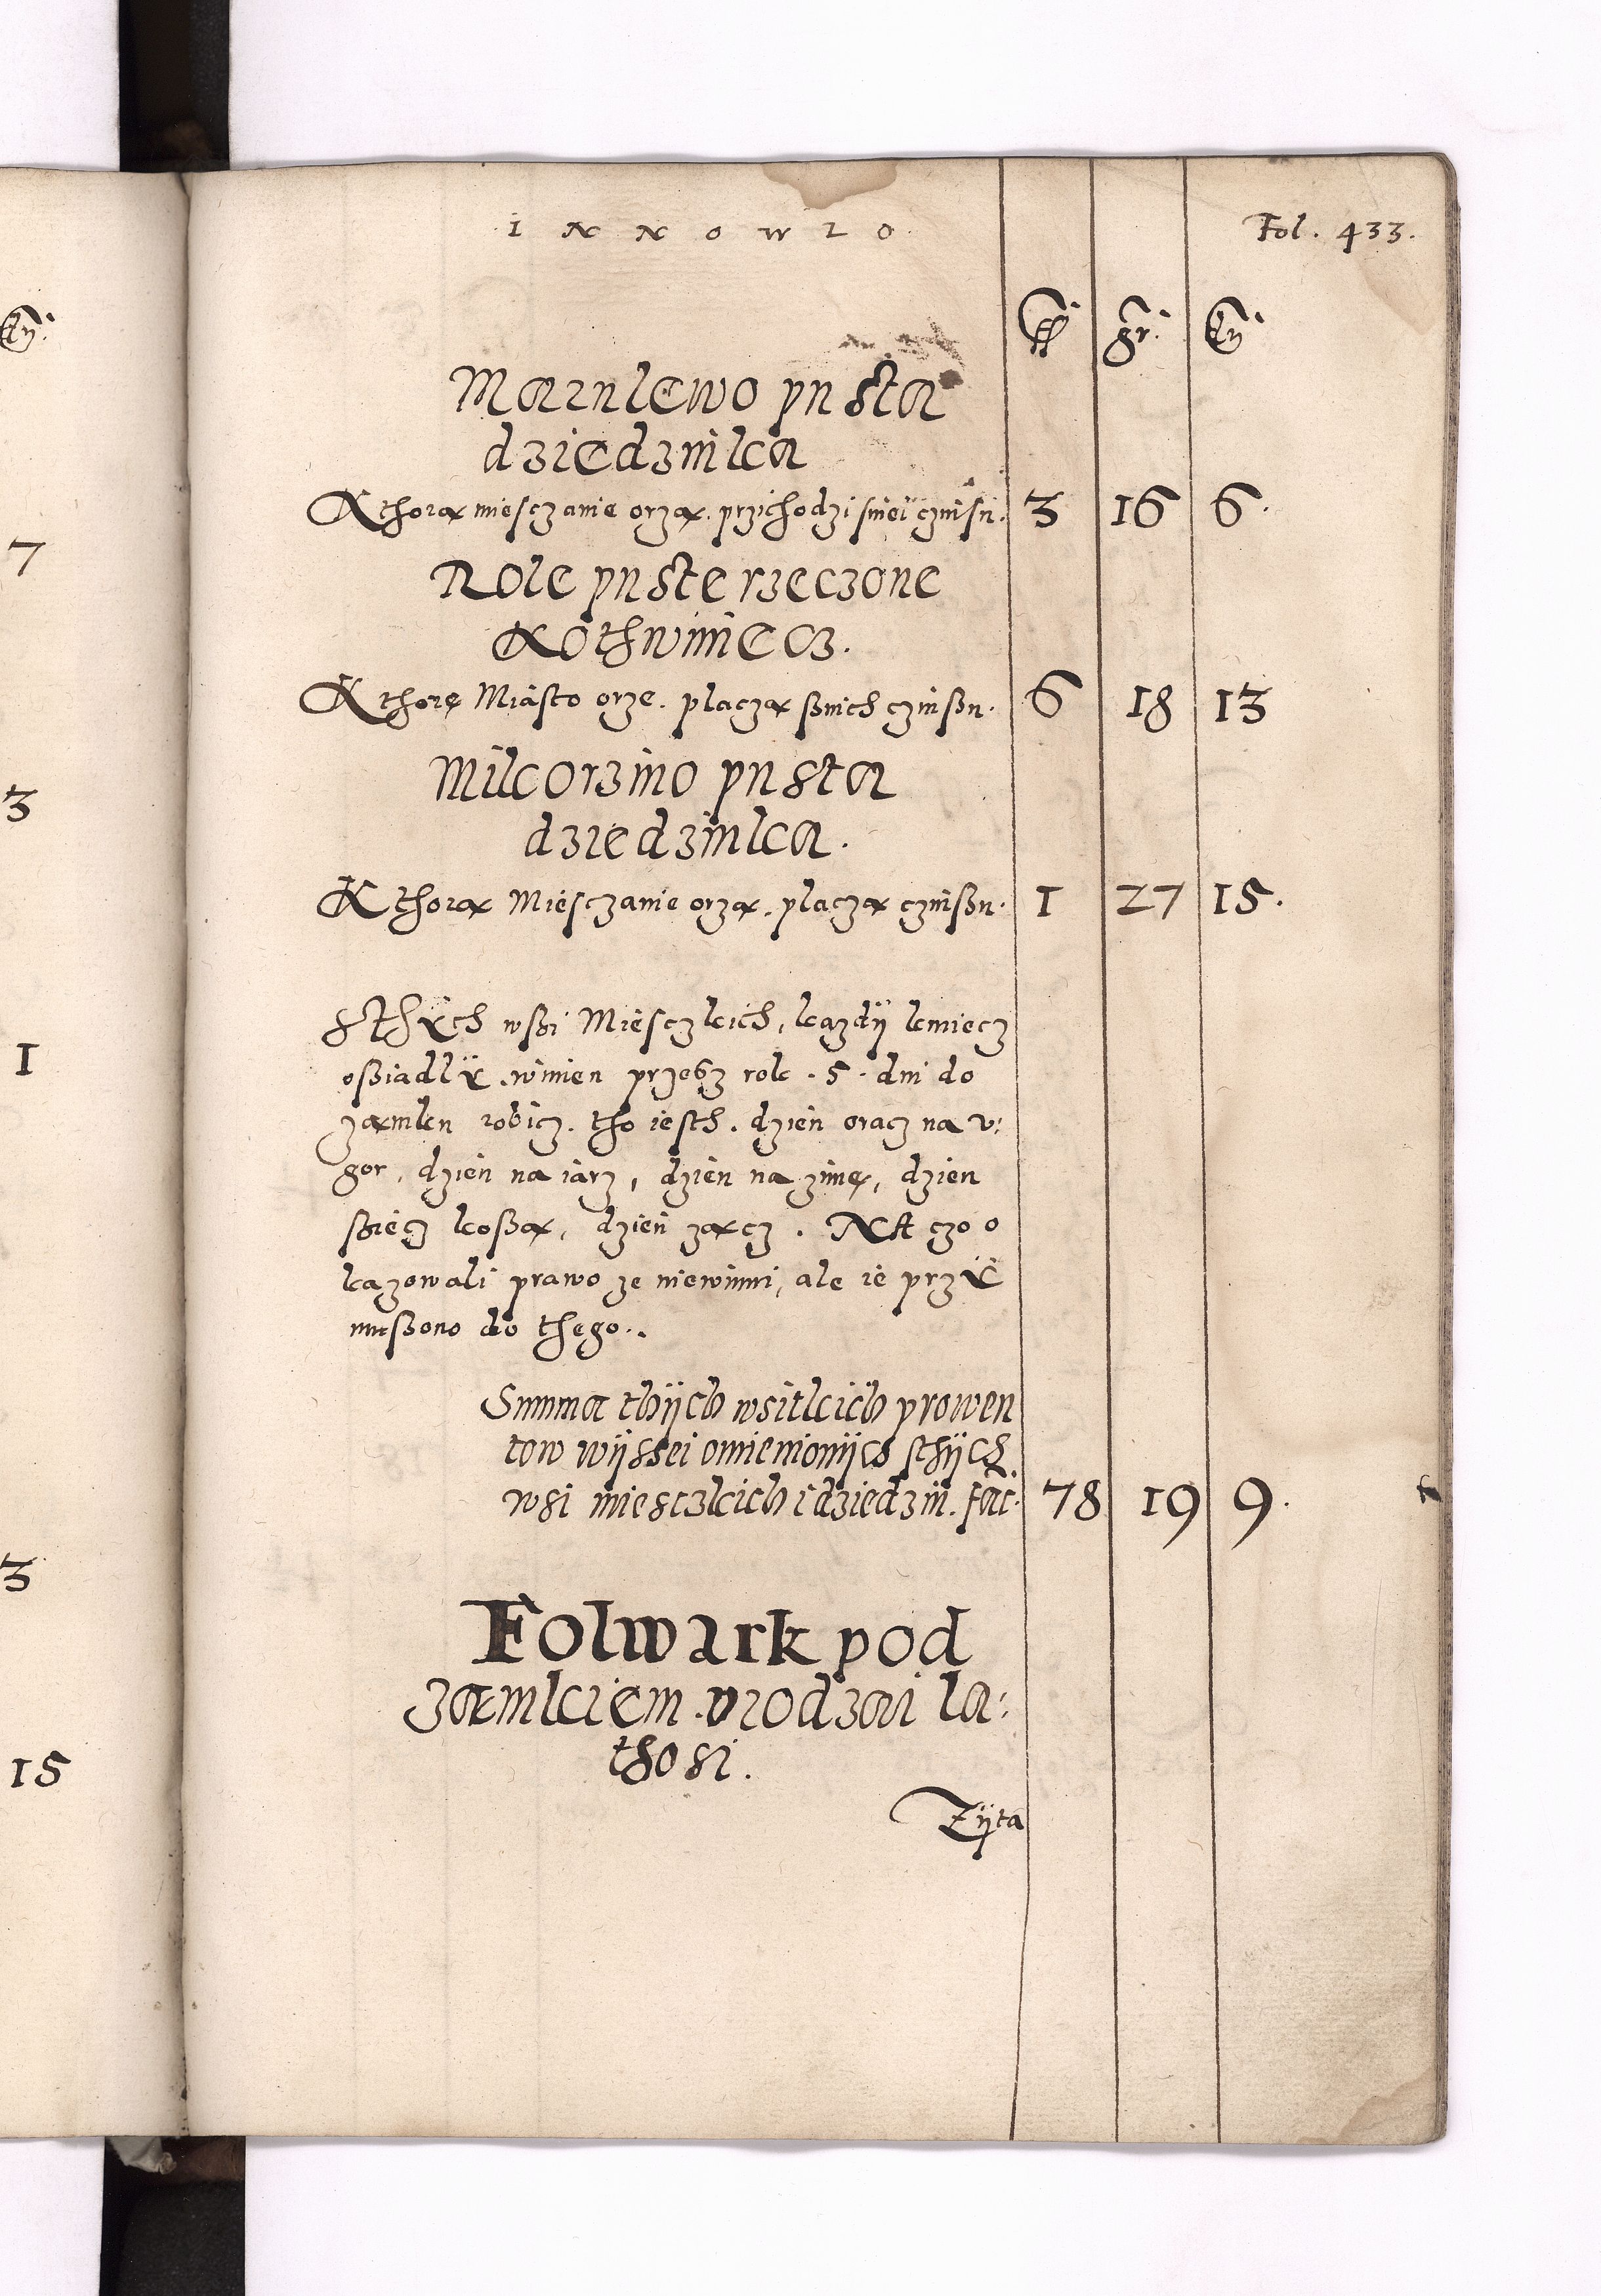 INNOWLO
Fol. 433.
fl gr. dn
Marulewo pusta
dziedzinka
Kthorą miesczanie orzą. przichodzi sniei czinsu. 3 16 6.
Role puste rzeczone
Kothwiniecz.
Kthorę Miasto orze. placzą ßnich czinßu. 6 18 13
Mikorzino pusta
dziedzinka.
Kthorą Miesczanie orzą. placzą czinßu. 1 27 15.
Sthÿch wßi Miesczkich, kazdÿ kmiecz
oßiadlÿ winien przesz rok . 5 . dni do
zamku robicz. tho iesth. dzien oracz na v:
gor, dzien na iarz, dzien na zimę, dzien
ßiecz koßą, dzien zącz. NA czo o
kazowali prawo ze niewinni, ale ie przÿ
mußono do thego..
Summa thÿch wsitkich prowen
tow wÿssei omienionÿch sthÿch
wsi miesczkich i dziedzin. fac. 78 19 9.
Folwark pod
zamkiem. vrodzai la:
thosi.
Zÿta
7
3
1
3
15